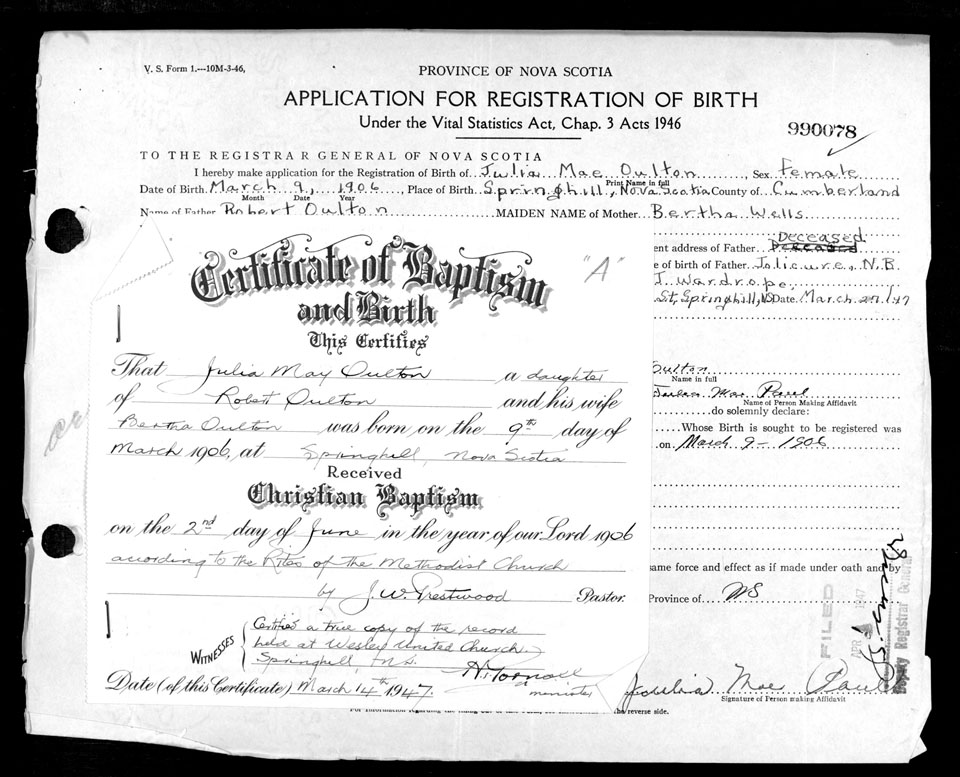 V. S. Form 1.---10M-3-46,
PROVINCE OF NOVA SCOTIA
APPLICATION FOR REGISTRATION OF BIRTH
Under the Vital Statistics Act, Chap. 3 Acts 1946
990078
TO THE REGISTRAR GENERAL OF NOVA SCOTIA
I hereby make application for the Registration of Birth of Julia Mae Oulton Sex Female
Print Name in full
Date of Birth March 9, 1906, Place of Birth Springhill, Nova Scotia County of Cumberland
Month Date Year
Name of Father Robert Oulton MAIDEN NAME of Mother Bertha Wells
Deceased
ent address of Father Deceased
e of birth of Father Jolicure, N.B.
J. Wardrope,
St, Springhill, NS Date March 27/47
Certificate of Baptism
"A"
and Birth
This Certifies
That Julia May Oulton a daughter
of Robert Oulton and his wife
Bertha Oulton was born on the 9th day of
March 1906, at Springhill, Nova Scotia
Received
Christian Baptism
on the 2nd day of June in the year of our Lord 1906
according to the Rites of the Methodist Church
by J. W. Prestwood Pastor.
WITNESSES
Certified a true copy of the record
held at Wesley United Church
Springhill, N.S.
minister
Date (of this Certificate) March 14th 1947.
Oulton
Name in full
Mae
Name of Person Making Affidavit
do solemnly declare:
Whose Birth is sought to be registered was
on March 9 - 1906
same force and effect as if made under oath and by
Province of NS
FILED
APR 1947
Deputy Registrar General
Mae
Signature of Person making Affidavit
the reverse side.